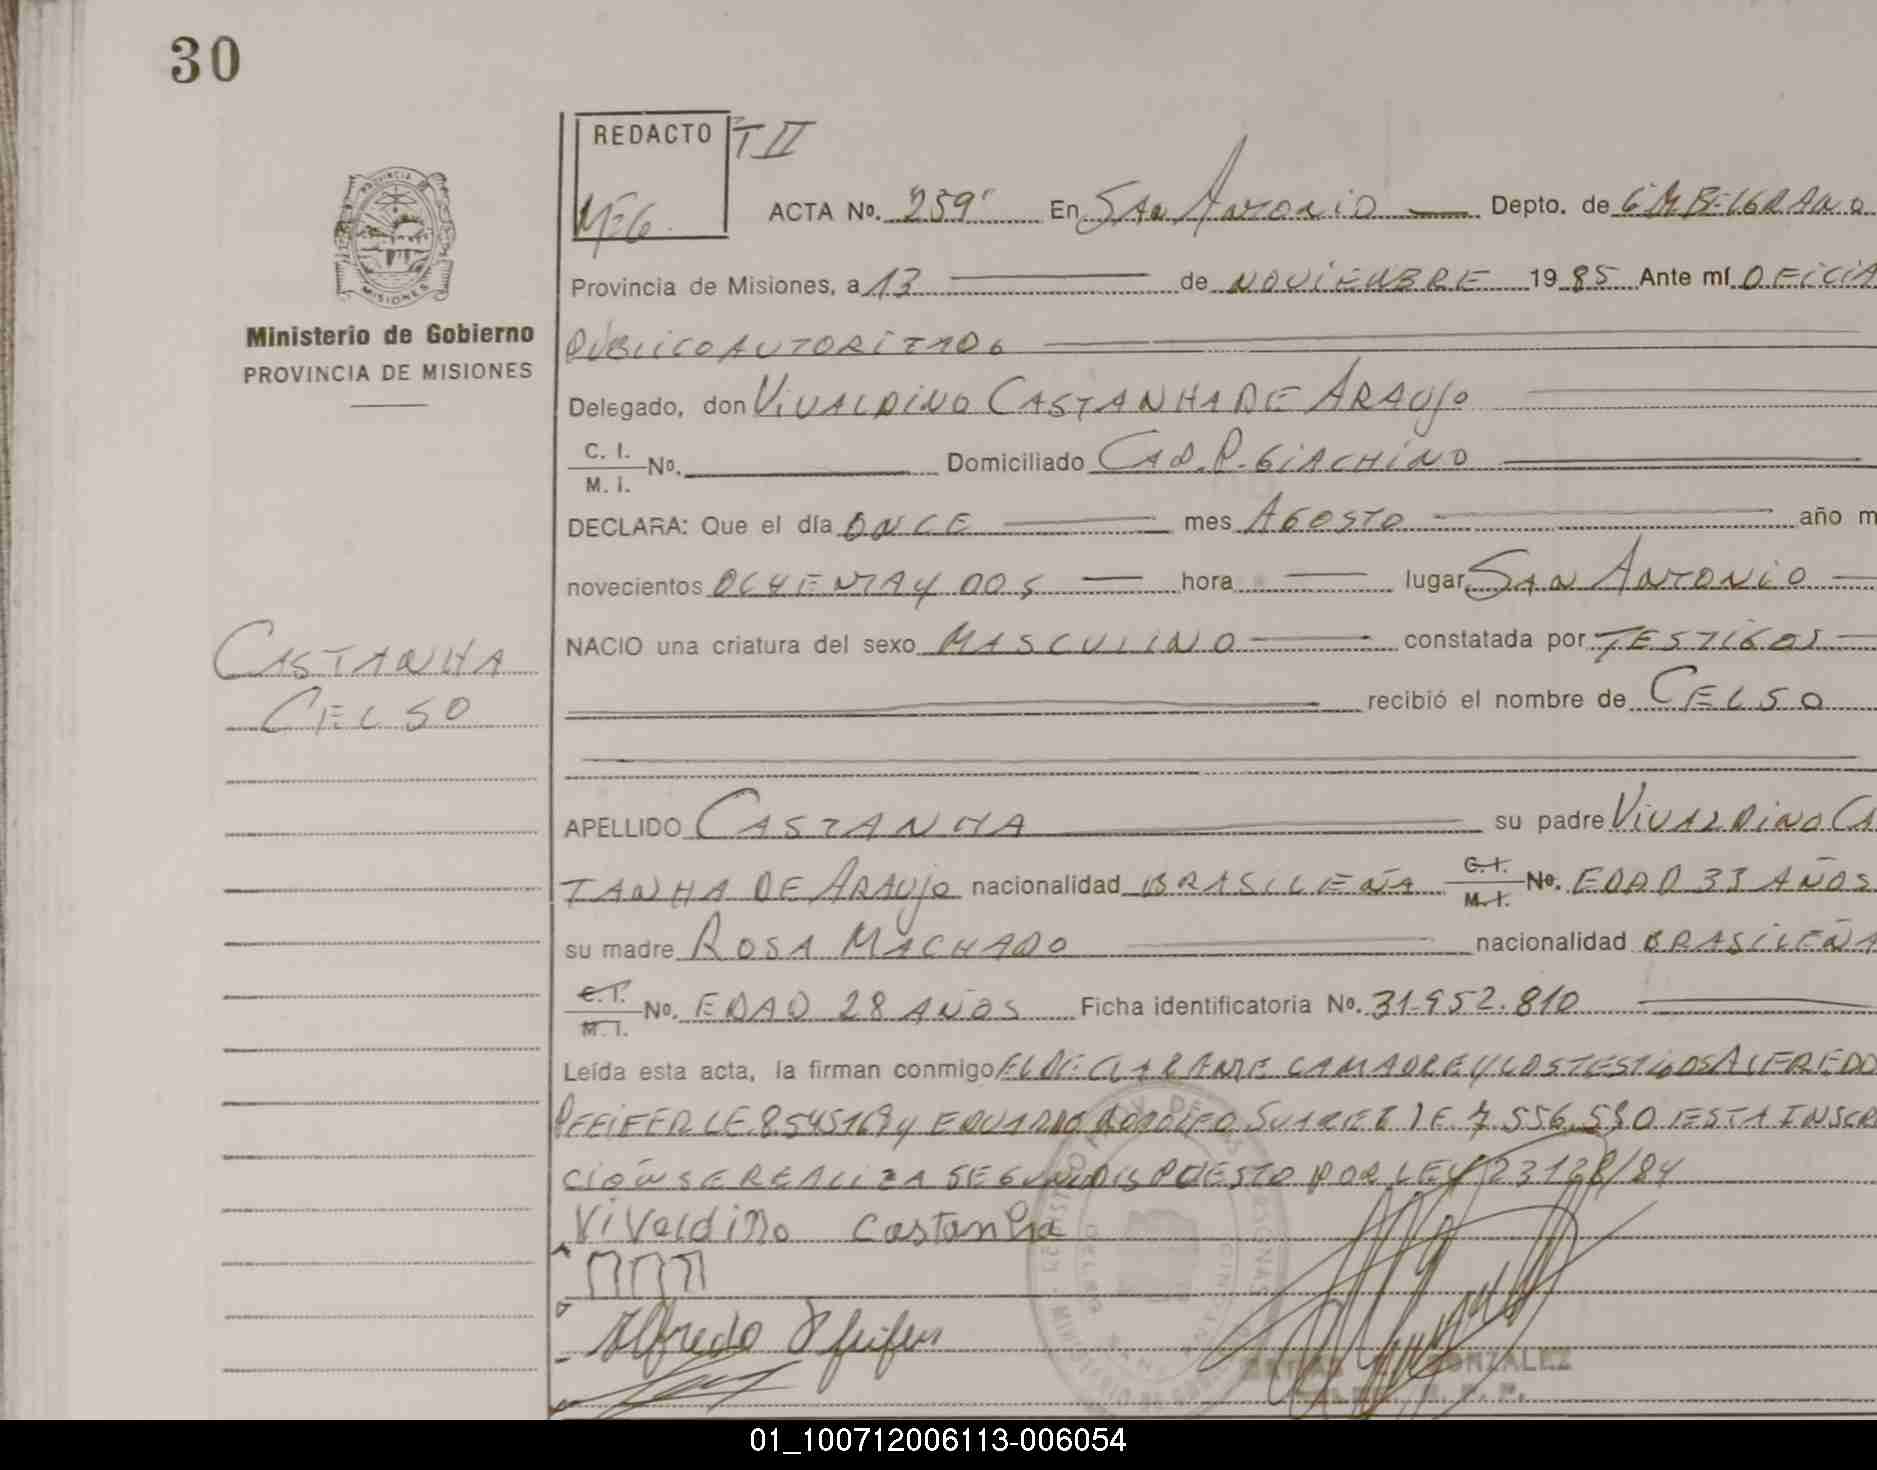 30
REDACTO T II
MEG
ACTA No. 259 En San Antonio Depto. de G M BELGRANO
PROVINCIA DE
MISIONES
Provincia de Misiones, a 13 de NOVIEMBRE 1985 Ante mí OFICIA
Ministerio de Gobierno
PROVINCIA DE MISIONES
PUBLICO AUTORIZADO
Delegado, don VIVALDINO CASTANHA DE ARAUJO
C. I.
M. I. No. Domiciliado CAD. P. GIACHINO
DECLARA: Que el día ONCE mes AGOSTO año m
novecientos OCHENTA Y DOS hora lugar SAN ANTONIO
NACIO una criatura del sexo MASCULINO constatada por TESTIGOS
CASTANHA
CELSO
recibió el nombre de CELSO
APELLIDO CASTANHA su padre VIVALDINO CA
TANHA DE ARAUJO nacionalidad BRASILEÑA C. I. M. I. No. EDAD 33 AÑOS
su madre ROSA MACHADO nacionalidad BRASILEÑA
C. I. M. I. No. EDAD 28 AÑOS Ficha identificatoria No. 31.952.810
Leída esta acta, la firman conmigo EL DECLARANTE LA MADRE Y LOS TESTIGOS ALFREDO
PFEIFER LE. 8545169 y EDUARDO RODOLFO SUAREZ LE 7.556.530 ESTA INSCR
CIÓN SE REALIZA SEGUN DISPUESTO POR LEY 23128/84
Vivaldino Castanha
Alfredo Pfeifer
GONZALEZ
01_100712006113-006054